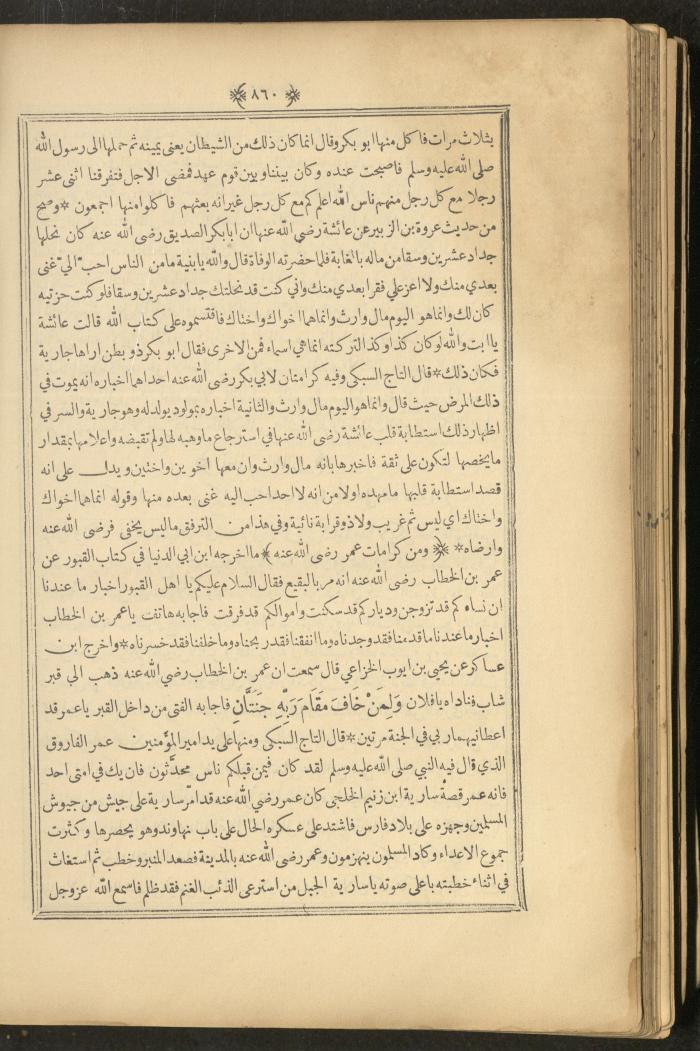 ٨٦٠
بثلاث مرات فاكل منها ابو بكر وقال انما كان ذلك من الشيطان يعنى يمينه ثم حملها الى رسول الله
صلى الله عليه وسلم فاصبحت عنده وكان بيننا وبين قوم عهد فمضى الاجل فتفرقنا اثنى عشر
رجلا مع كل رجل منهم ناس الله اعلم كم مع كل رجل غير انه بعثهم فاكلوا منها اجمعون * وصح
من حديث عروة بن الزبير عن عائشة رضى الله عنها ان ابا بكر الصديق رضى الله عنه كان نحلها
جداد عشرين وسقا من ماله بالغابة فلما حضرته الوفاة قال والله يا بنية ما من الناس احب الي غنى
بعدي منك ولا اعز علي فقرا بعدي منك واني كنت قد نحلتك جداد عشرين وسقا فلو كنت حزتيه
كان لك وانما هو اليوم مال وارث وانما هما اخواك واختاك فاقتسموه على كتاب الله قالت عائشة
يا ابت والله لو كان كذا وكذا لتركته انما هي اسماء فمن الاخرى فقال ابو بكر ذو بطن اراها جارية
فكان ذلك * قال التاج السبكى وفيه كرامتان لابي بكر رضى الله عنه احداهما اخباره انه يموت في
ذلك المرض حيث قال وانما هو اليوم مال وارث والثانية اخباره بمولود يولد له وهو جارية والسر في
اظهار ذلك استطابة قلب عائشة رضى الله عنها في استرجاع ما وهبه لها ولم تقبضه واعلامها بمقدار
ما يخصها لتكون على ثقة فاخبرها بانه مال وارث وان معها اخوين واختين ويدل على انه
قصد استطابة قلبها ما مهده اولا من انه لا احد احب اليه غنى بعده منها وقوله انما هما اخواك
واختاك اي ليس ثم غريب ولا ذو قرابة نائية وفي هذا من الترفق ما ليس يخفى فرضى الله عنه
وارضاه * ﴿ ومن كرامات عمر رضى الله عنه ﴾ ما اخرجه ابن ابي الدنيا في كتاب القبور عن
عمر بن الخطاب رضى الله عنه انه مر بالبقيع فقال السلام عليكم يا اهل القبور اخبار ما عندنا
ان نساءكم قد تزوجن ودياركم قد سكنت واموالكم قد فرقت فاجابه هاتف يا عمر بن الخطاب
اخبار ما عندنا ما قدمنا فقد وجدناه وما انفقنا فقد ربحناه وما خلفنا فقد خسرناه * واخرج ابن
عساكر عن يحيى بن ايوب الخزاعي قال سمعت ان عمر بن الخطاب رضي الله عنه ذهب الى قبر
شاب فناداه يا فلان وَلِمَنْ خَافَ مَقَامَ رَبِّهِ جَنَتَّانِ فاجابه الفتى من داخل القبر يا عمر قد
اعطانيهما ربي في الجنة مرتين * قال التاج السبكى ومنها على يد امير المؤمنين عمر الفاروق
الذي قال فيه النبي صلى الله عليه وسلم لقد كان فيمن قبلكم ناس محدَّثون فان يك في امتى احد
فانه عمر قصة سارية ابن زنيم الخلجى كان عمر رضى الله عنه قد امّر سارية على جيش من جيوش
المسلمين وجهزه على بلاد فارس فاشتد على عسكره الحال على باب نهاوند وهو يحصرها وكثرت
جموع الاعداء وكاد المسلمون ينهزمون وعمر رضى الله عنه بالمدينة فصعد المنبر وخطب ثم استغاث
في اثناء خطبته باعلى صوته يا سارية الجبل من استرعى الذئب الغنم فقد ظلم فاسمع الله عز وجل